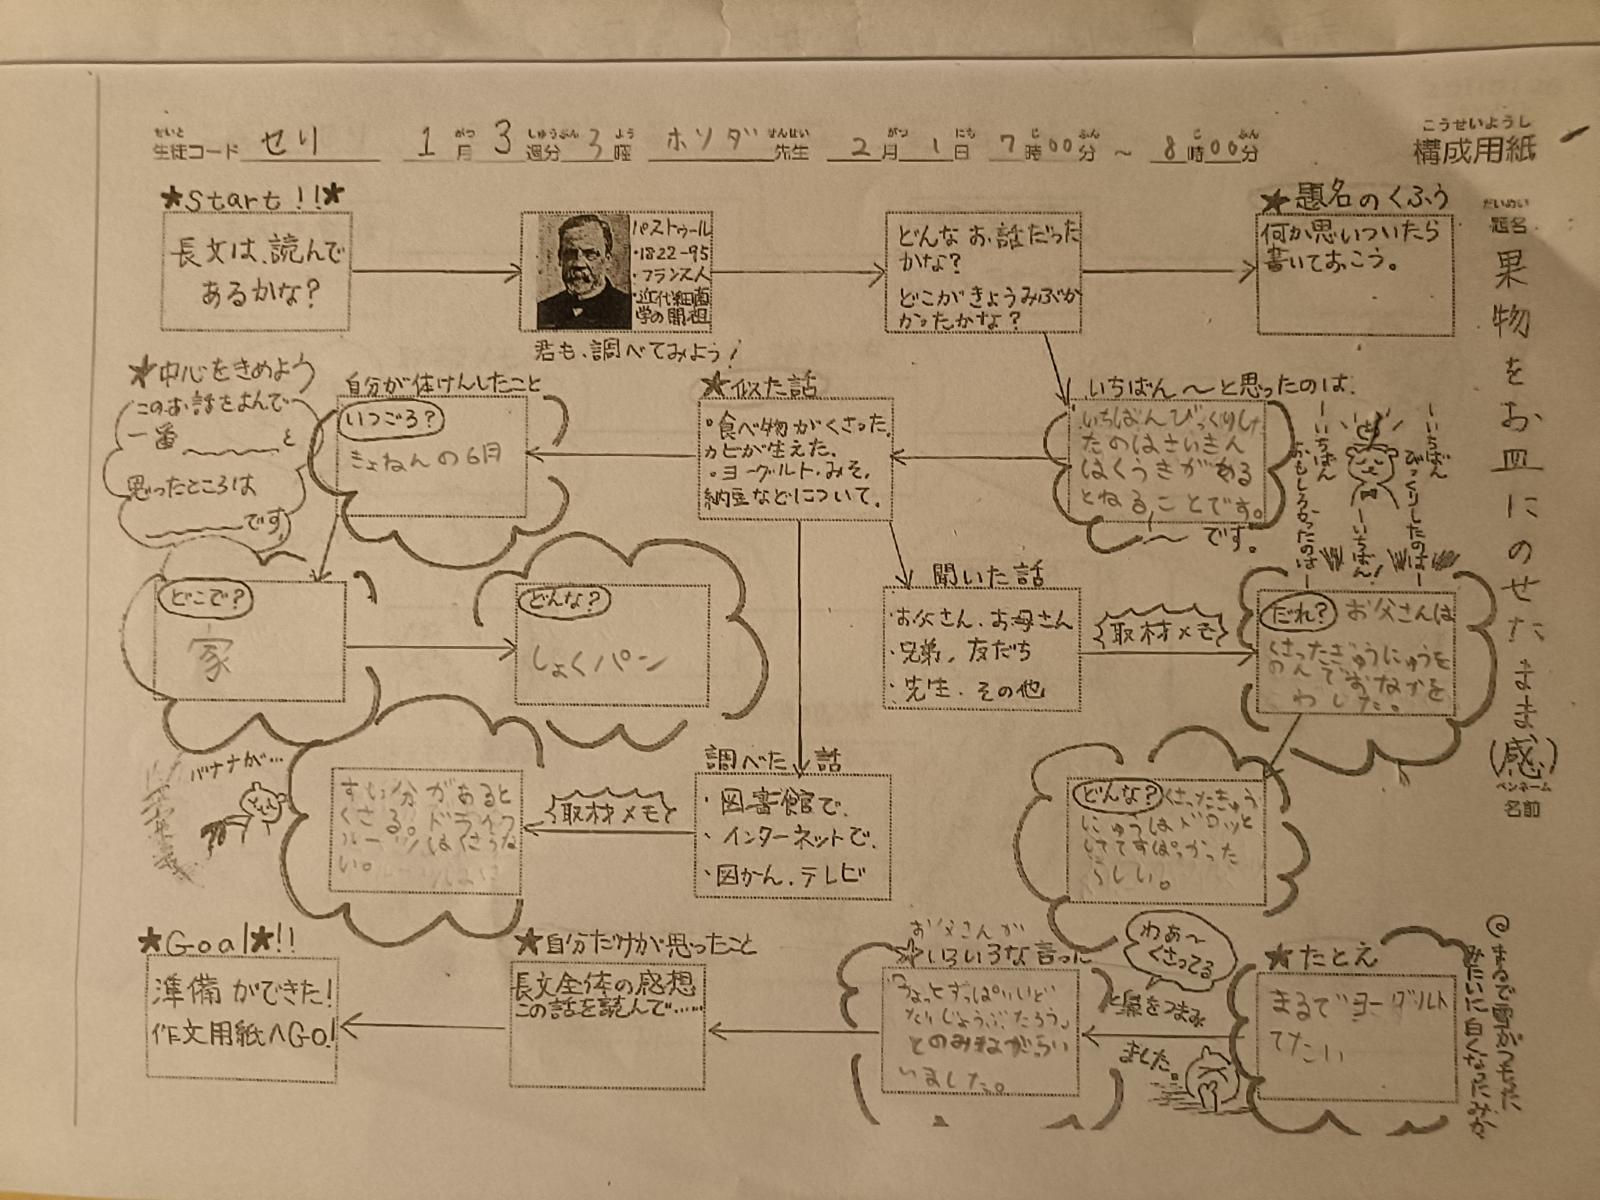 生徒コード セリ 1月3週分3曜 ホソダ先生 2月1日7時00分～8時00分
こうせいようし
構成用紙
だいめい
題名
果物をお皿にのせたまま(感)
ペンネーム
名前
★Start!!★
長文は、読んで
あるかな?
パストゥール
・1822-95
・フランス人
・近代細菌
学の開祖
君も、調べてみよう!
どんなお話だった
かな?
どこがきょうみぶか
かったかな?
★題名のくふう
何か思いついたら
書いておこう。
いちばん～と思ったのは、
いちばんびっくりし
たのはさいきん
はくうきがある
とねることです。
～です。
―いちばん
びっくりしたのは―
―いちばん!
―いちばん
おもしろかったのは―
★似た話
・食べ物がくさった。
カビが生えた。
・ヨーグルト・みそ、
納豆などについて。
自分が体けんしたこと
いつごろ?
きょねんの6月
★中心をきめよう
このお話をよんで
一番 と
思ったところは
です
どこで?
家
どんな?
しょくパン
聞いた話
・お父さん、お母さん
・兄弟、友だち
・先生、その他
取材メモ
だれ? お父さんは
くさったぎゅうにゅうを
のんでおなかを
こわした。
どんな? くさったぎゅう
にゅうはドロッと
してすっぱかった
らしい。
調べた話
・図書館で、
・インターネットで、
・図かん、テレビ
取材メモ
すい分があると
くさる。ドライフ
ルーツはくさらな
い。
バナナが…
★たとえ
まるでヨーグルト
みたい
わあ～
くさってる
と鼻をつまみ
ました。
お父さんが
★いろいろな言った
ちょっとすっぱいけど
だいじょうぶだろう。
とのみながら
いました。
★自分だけが思ったこと
長文全体の感想
この話を読んで……
★Goal★!!
準備ができた!
作文用紙へGo!